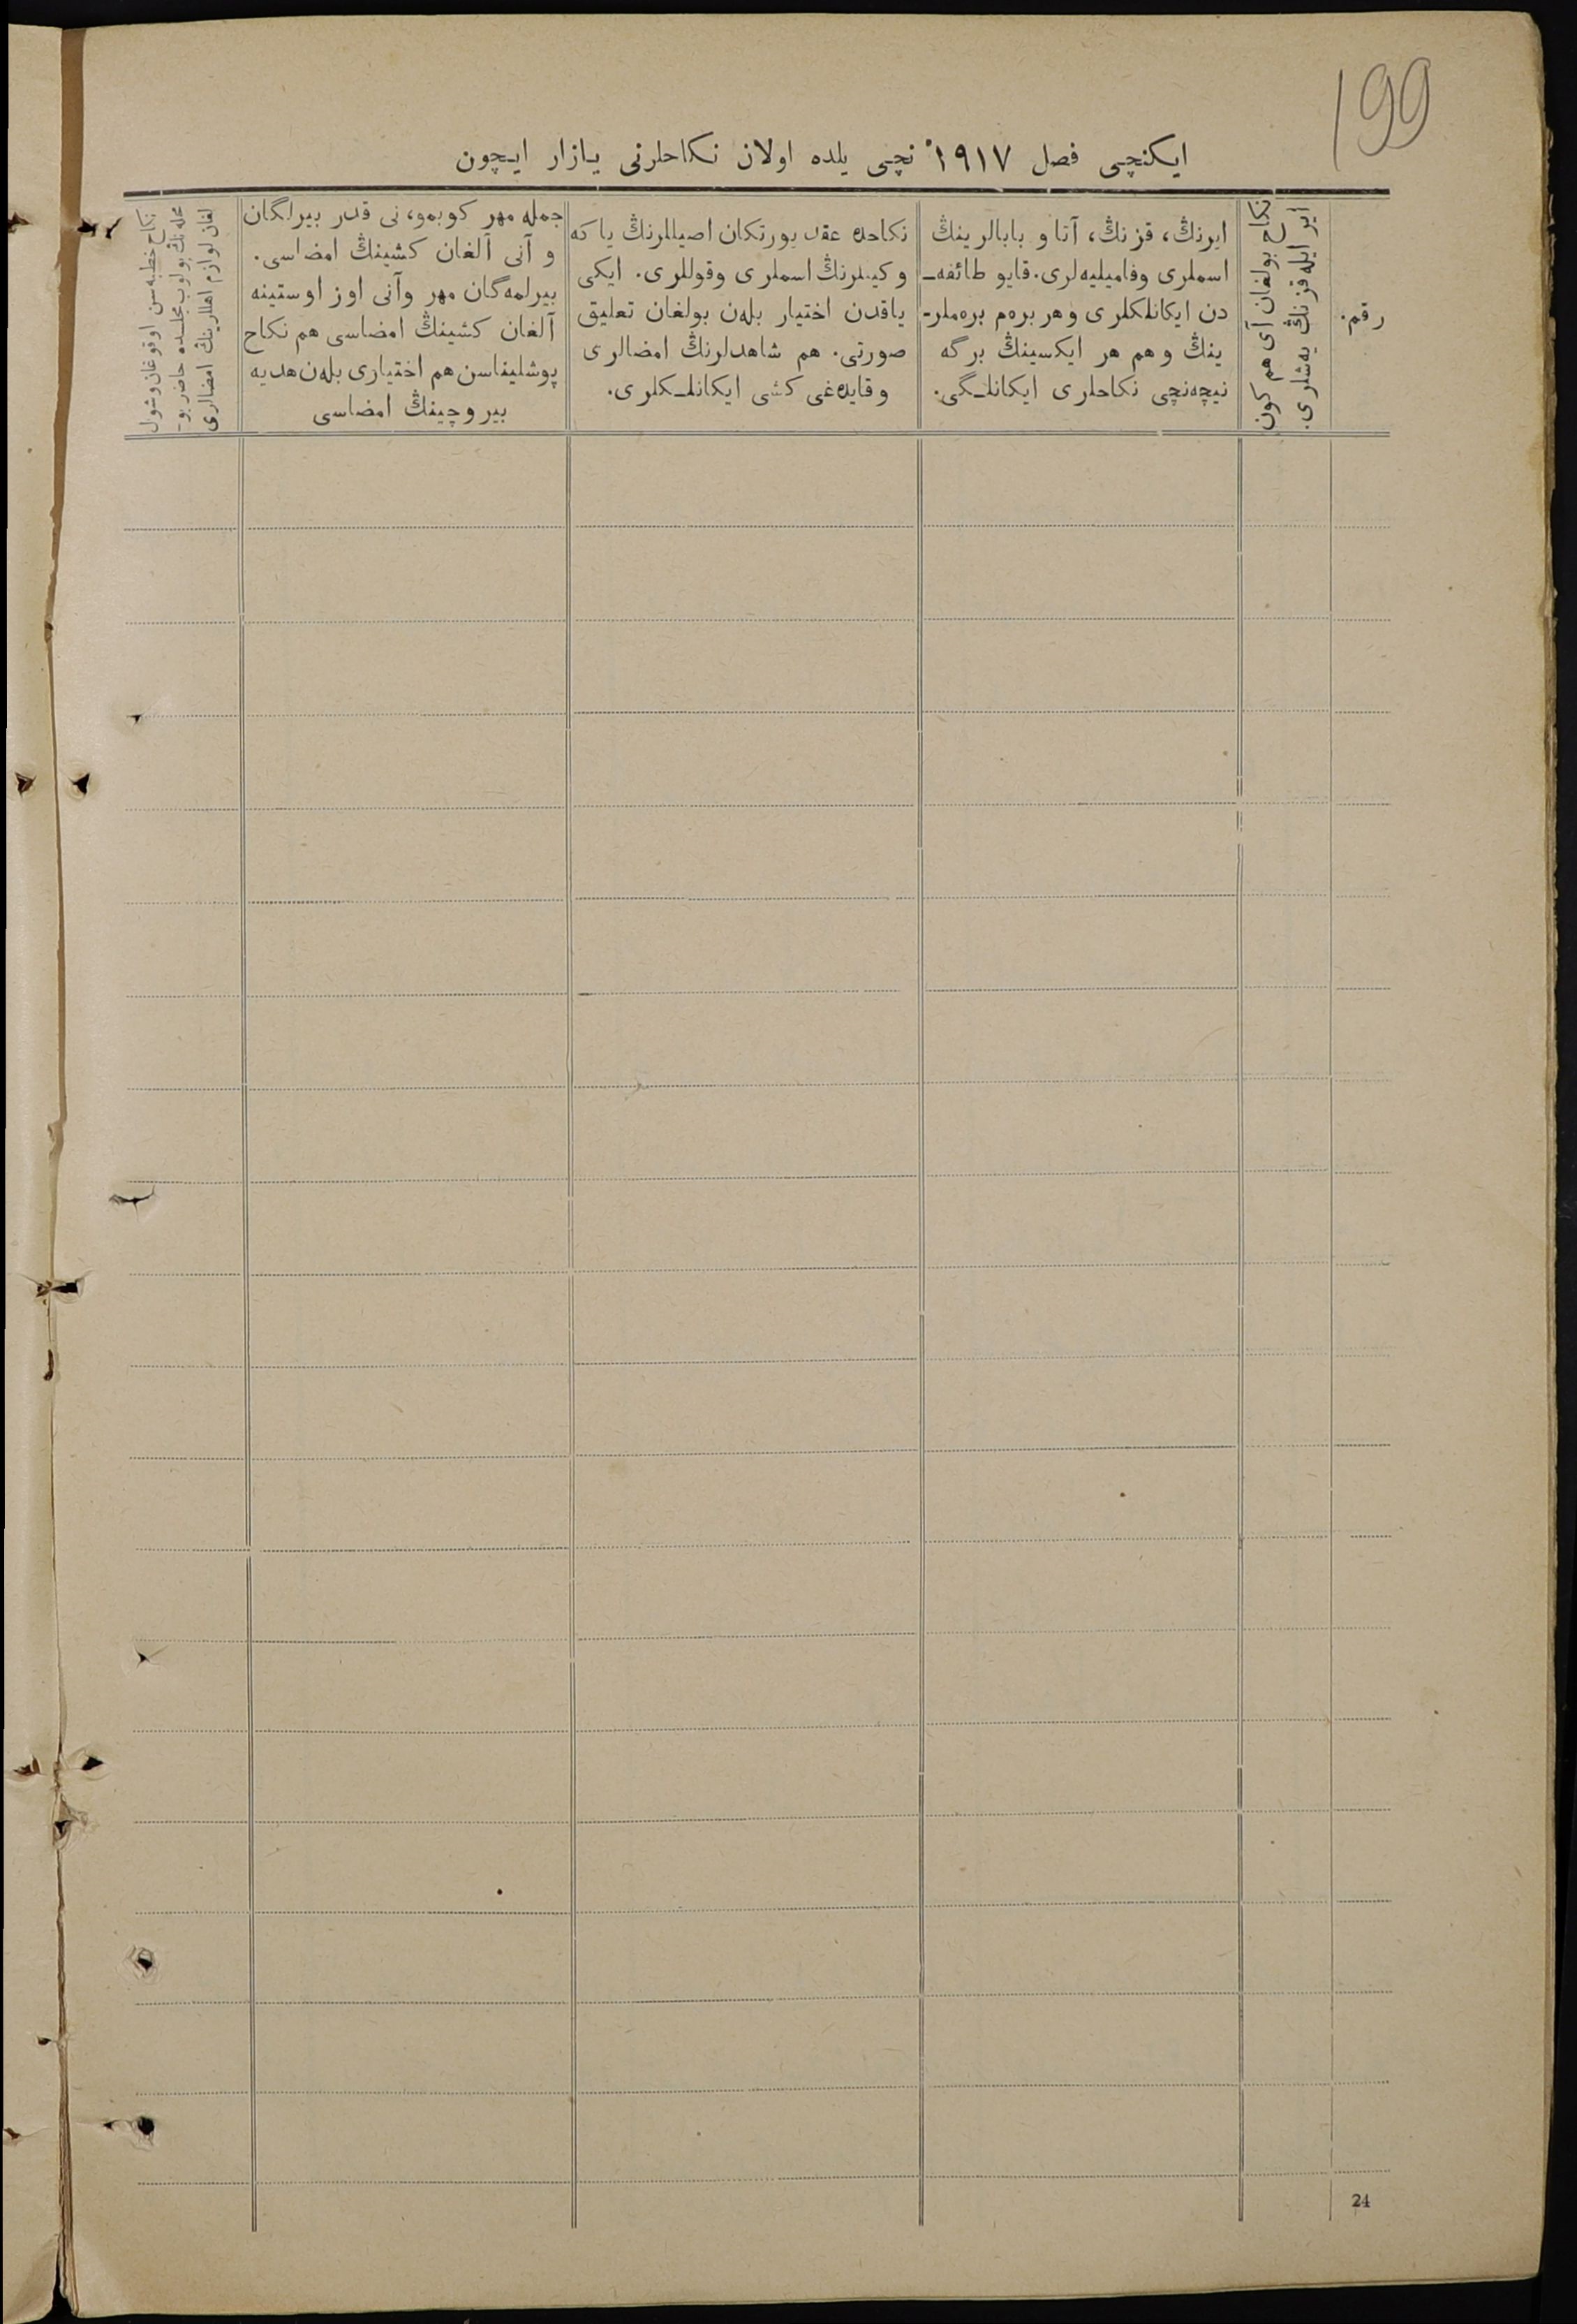 199
ایکنچی فصل ۱۹۱۷ نچی یلده اولان نکاحلرنی یازار ایچون
رقم.
نکاح بولغان آی هم کون
ایر ایله قزنڭ یه‌شلری.
ایرنڭ، قزنڭ، آتا و بابالرینڭ
اسملری وفامیلیه‌لری. قایو طائفه‌ـ
دن ایکانلکلری و هر بره‌م بره‌ملرـ
ینڭ و هم هر ایکسینڭ برگه
نیچه‌نچی نکاحلری ایکانلـگی.
نکاحده عقد یورتکان اصیللرنڭ یا که
وکیللرنڭ اسملری وقوللری. ایکی
یاقدن اختیار بله‌ن بولغان تعلیق
صورتی. هم شاهدلرنڭ امضالری
وقایده‌غی کشی ایکانلـکلری.
جمله مهر کوبمو، نی قدر بیرلگان
و آنی آلغان کشینڭ امضاسی.
بیرلمه‌گان مهر وآنی اوز اوستینه
آلغان کشینڭ امضاسی هم نکاح
پوشلیناسن هم اختیاری بله‌ن هدیه
بیروچینڭ امضاسی
نکاح خطبه‌سن اوقوغان وشول
محله‌نڭ بولوب مجلسده حاضر بوـ
لغان لوازم اهللرینڭ امضالری
24